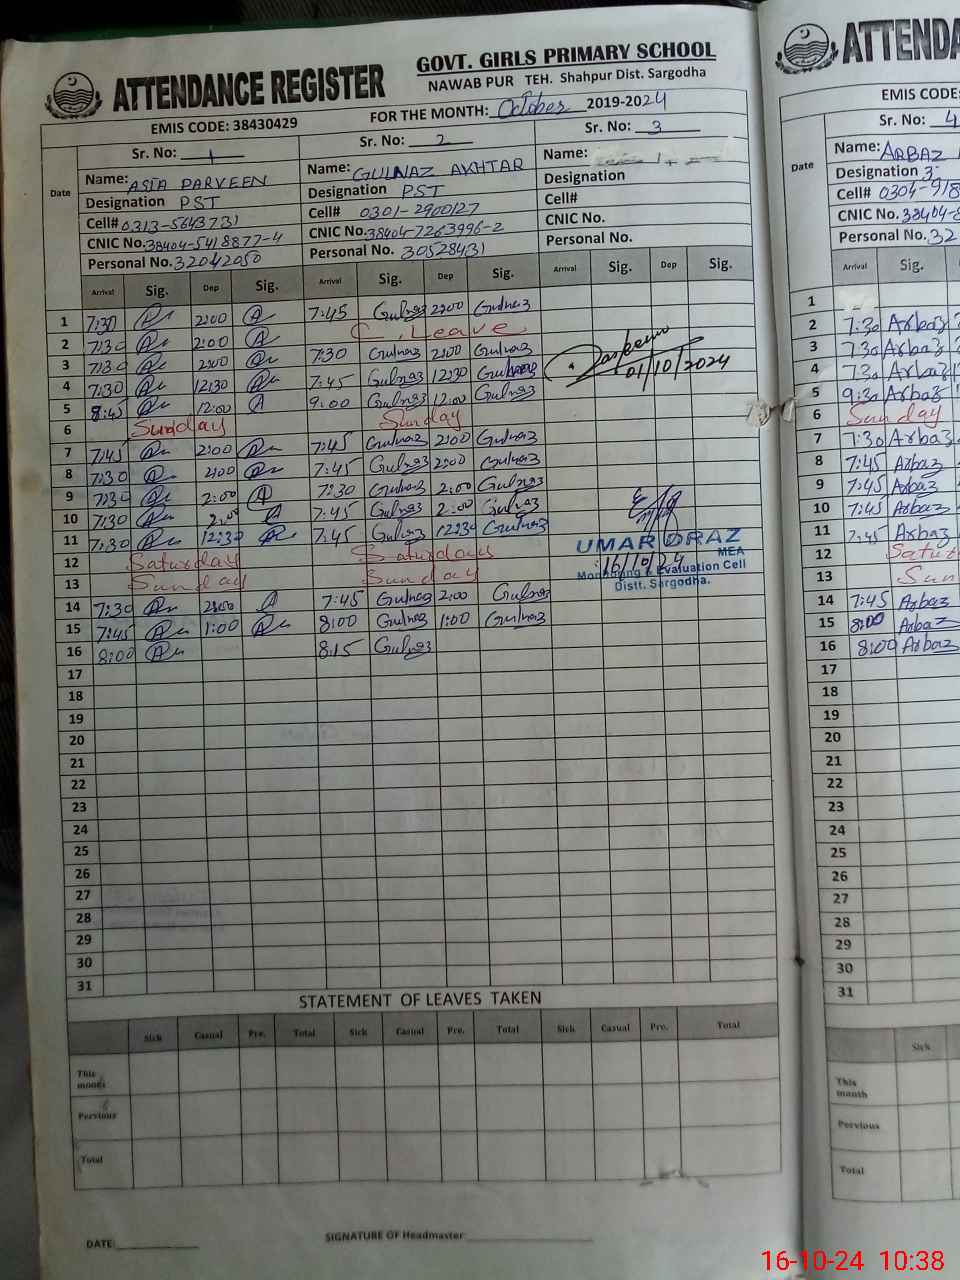 ATTENDANCE REGISTER
GOVT. GIRLS PRIMARY SCHOOL
NAWAB PUR TEH. Shahpur Dist. Sargodha
EMIS CODE: 38430429
FOR THE MONTH: October 2019-2024
Sr. No: 1 Sr. No: 2 Sr. No: 3
Date
Name: ASIA PARVEEN Name: GULNAZ AKHTAR Name:
Designation PST Designation PST Designation
Cell# 0313-5643731 Cell# 0301-2900127 Cell#
CNIC No. 38404-5418877-4 CNIC No. 38404-7263996-2 CNIC No.
Personal No. 32042050 Personal No. 30528431 Personal No.
Arrival Sig. Dep Sig. Arrival Sig. Dep Sig. Arrival Sig. Dep Sig.
1 7:30 2:00 7:45 Gulnaz 2:00 Gulnaz
2 7:30 2:00 C. Leave
3 7:30 2:00 7:30 Gulnaz 2:00 Gulnaz
4 7:30 12:30 7:45 Gulnaz 12:30 Gulnaz
01/10/2024
5 8:45 12:00 9:00 Gulnaz 12:00 Gulnaz
6 Sunday Sunday
7 7:45 2:00 7:45 Gulnaz 2:00 Gulnaz
8 7:30 2:00 7:45 Gulnaz 2:00 Gulnaz
9 7:30 2:00 7:30 Gulnaz 2:00 Gulnaz
10 7:30 2:00 7:45 Gulnaz 2:00 Gulnaz
11 7:30 12:30 7:45 Gulnaz 12:30 Gulnaz
12 Saturday Saturday
13 Sunday Sunday
UMAR DRAZ
MEA
16/10/24
Monitoring & Evaluation Cell
Distt. Sargodha.
14 7:30 2:00 7:45 Gulnaz 2:00 Gulnaz
15 7:45 1:00 8:00 Gulnaz 1:00 Gulnaz
16 8:00 8:15 Gulnaz
17
18
19
20
21
22
23
24
25
26
27
28
29
30
31
STATEMENT OF LEAVES TAKEN
Sick Casual Pre. Total Sick Casual Pre. Total Sick Casual Pre. Total
This
Pervious
Total
DATE: SIGNATURE OF Headmaster
ATTENDA
EMIS CODE:
Sr. No: 4
Date
Name: ARBAZ
Designation
Cell# 0304-918
CNIC No. 38404-8
Personal No. 32
Arrival Sig.
1
2 7:30 Arbaz
3 7:30 Arbaz
4 7:30 Arbaz
5 9:30 Arbaz
6 Sunday
7 7:30 Arbaz
8 7:45 Arbaz
9 7:45 Arbaz
10 7:45 Arbaz
11 7:45 Arbaz
12 Satur
13 Sun
14 7:45 Arbaz
15 8:00 Arbaz
16 8:00 Arbaz
17
18
19
20
21
22
23
24
25
26
27
28
29
30
31
Sick
This
month
Pervious
Total
16-10-24 10:38